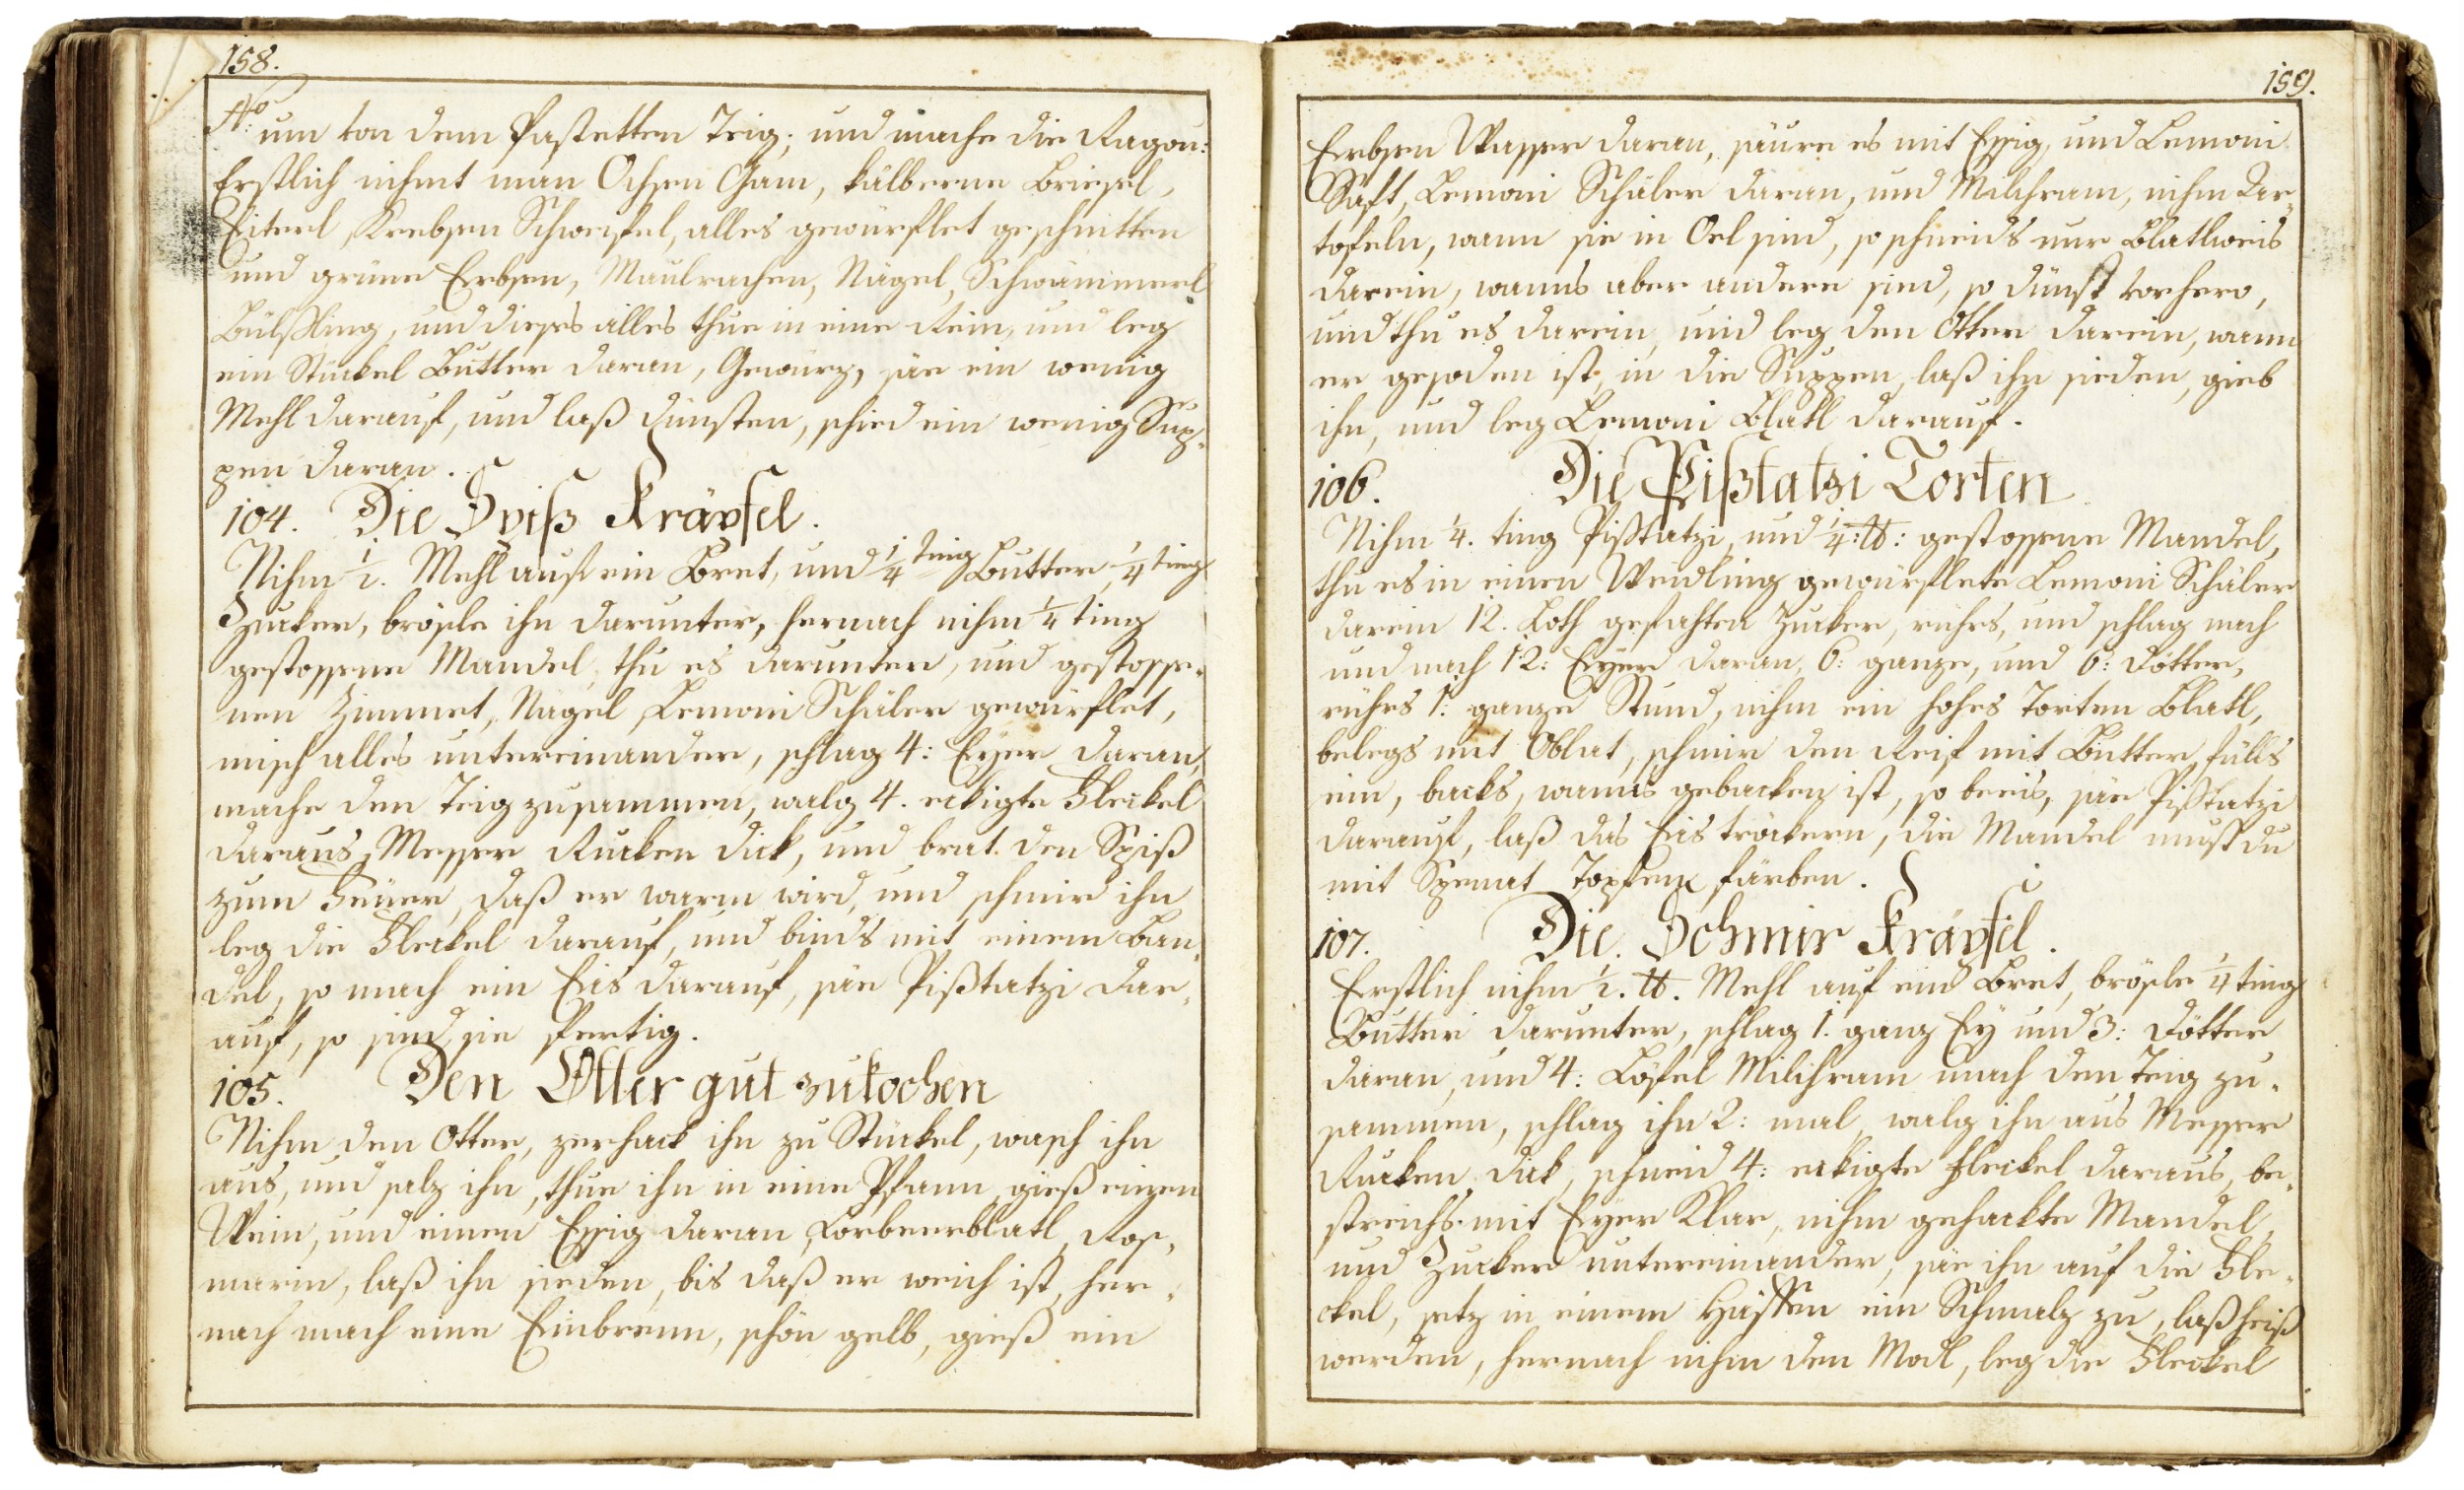 158.
No: um von dem Pastetten Teig, und mache die Ragou:
Erstlich nihmt man Ochsen Gam, kälberne Briesel,
Eiterl, Krebsen Schweifel, alles gewürflet geschnitten
und grüne Erbsen, Maurachen, Nägel, Schwämmerl
Bülßling, und dieses alles thue in eine Rein, und leg
ein Stückel Butter daran, Gewürz, säe ein wenig
Mehl darauf, und laß dünsten, schied ein wenig Sup-
pen daran.
104. Die Spiß Kräpfel.
Nihm 1/2. Mehl auf ein Bret, und 1/4 ting Butter, 1/4 ting
Zucker, brösle ihn darunter, hernach nihm 1/4 ting
gestossene Mandel, thu es darunter, und gestosse-
nen Zimmet, Nägel, Lemoni Schäler gewürflet,
misch alles untereinander, schlag 4: Eyer daran,
mache den Teig zusammen, walg 4. eckigte Fleckel
daraus, Messer Rucken dick, und brat den Spiß
zum Feüer, daß er warm wird, und schmir ihn
leg die Fleckel darauf, und binds mit einem Ban-
del, so mach ein Eis darauf, säe Pißtatzi dar-
auf, so sind sie fertig.
105. Den Otter gut zukochen
Nihm den Otter, zerhack ihn zu Stückel, wasch ihn
aus, und salz ihn, thue ihn in eine Pfann, gieß einen
Wein, und einen Essig daran, Lorbeerblatl, Ros-
marin, laß ihn sieden, bis daß er weich ist, her-
nach mach eine Einbrenn, schön gelb, gieß ein
159.
Erbsen Wasser daran, säure es mit Essig, und Lemoni
Saft, Lemoni Schäler daran, und Milchram, nihm Tar-
tofeln, wann sie in Oel sind, so schneids nur Blatlweis
darein, wanns aber andere sind, so dünst vorhero,
und thu es darein, und leg den Otter darein, wann
er gesoden ist, in die Suppen, laß ihn sieden, gieb
ihn, und leg Lemoni Blatl darauf.
106. Die Pißtatzi Torten
Nihm 1/4. ting Pißtatzi, und 1/4: ℔: gestossene Mandel,
thu es in einen Weidling gewürflete Lemoni Schäler
darein 12. Loth gefahten Zucker, rührs, und schlag nach
und nach 12: Eyer daran, 6: ganze, und 6: Dötter,
rührs 1: ganze Stund, nihm ein hohes Torten Blatl,
belegs mit Oblat, schmir den Reif mit Butter, fülls
ein, backs, wanns gebacken ist, so beeis, säe Pißtatzi
darauf, laß das Eis tröckern, die Mandel must du
mit Spenat Topfen färben.
107. Die Schmir Kräpfel.
Erstlich nihm 1/2. ℔. Mehl auf ein Bret, brösle 1/4 ting
Butter darunter, schlag 1. ganz Ey und 3: Dötter
daran, und 4: Löfel Milchram mach den Teig zu-
sammen, schlag ihn 2: mal, walg ihn aus Messer
Rucken dick, schneid 4: eckigte Fleckel daraus, be-
streichs mit Eyer Klar, nihm gehackte Mandel,
und Zucker untereinander, säe ihn auf die Fle-
ckel, setz in einem Hässen ein Schmalz zu, laß heiß
werden, hernach nihm den Modl, leg die Fleckel